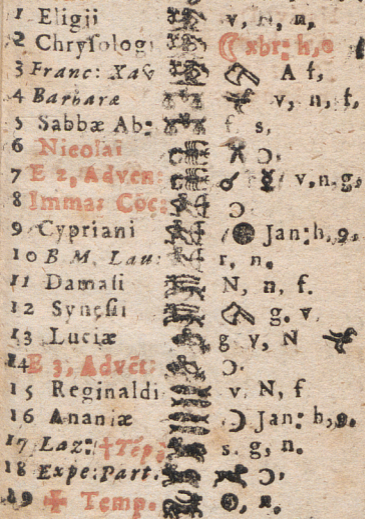 1 Eligii v, N, n,
2 Chryſolog: ☾ xbr: h,
3 Franc: Xav A f,
4 Barbaræ v, n, f,
5 Sabbæ Ab: f s,
6 Nicolai Ɔ,
7 E 2, Adven: ☌ ☿ v,n,g,
8 Imma: Cōc: Ɔ
9 Cypriani Jan:h,9,
10 B M. Lau: r, n.
11 Damaſi N, n, f.
12 Syneſii g. v,
13 Luciæ g v, N
14 E 3, Advēt: Ɔ.
15 Reginaldi v, N, f
16 Ananiæ Ɔ Jan: h,9.
17 Laz: †Tēp: s. g, n.
18 Expe:Part. Ɔ,
19 ✠ Temp. n.